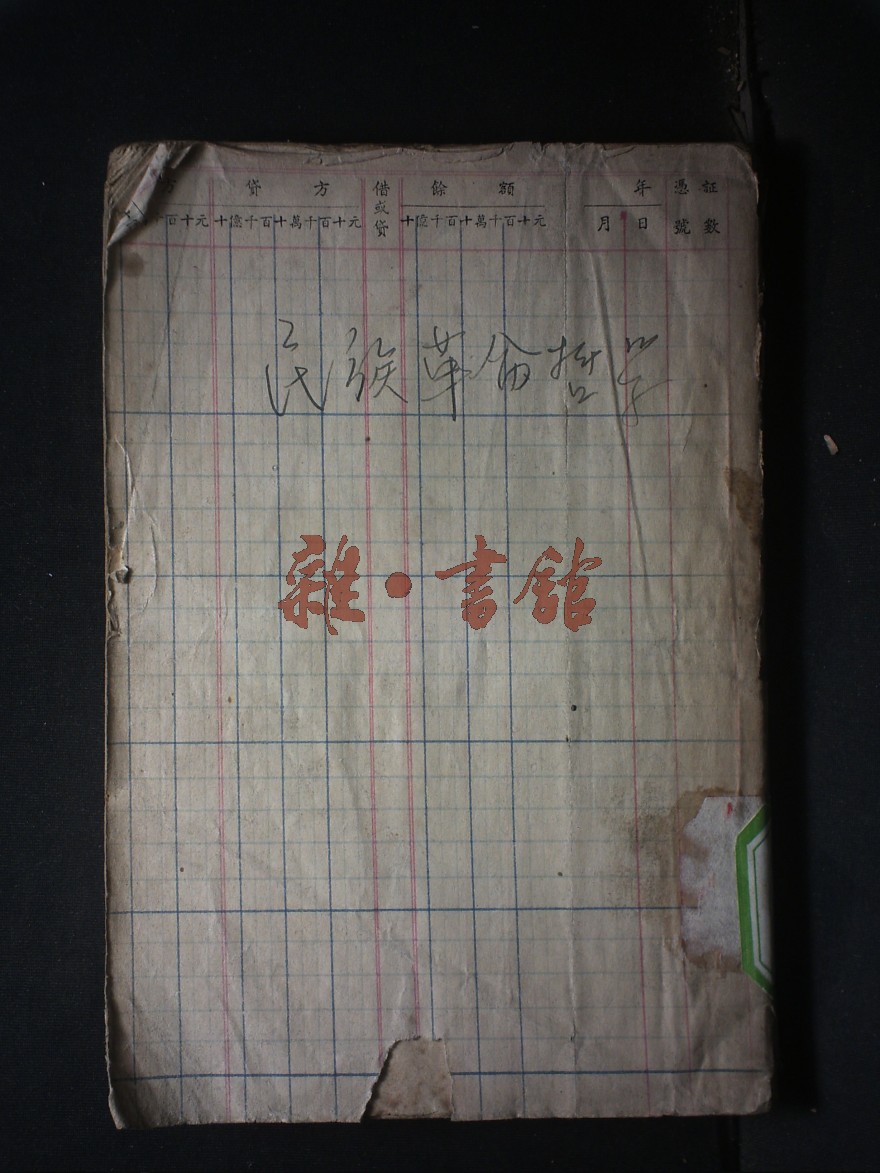 方 貸方 借或貸 餘額 年 憑証
十百十元 十億千百十萬千百十元 十億千百十萬千百十元 月 日 號數
民族革命哲学
雜·書館